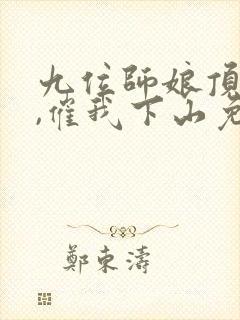 九位師娘頂
,催我下山免
鄭東濤